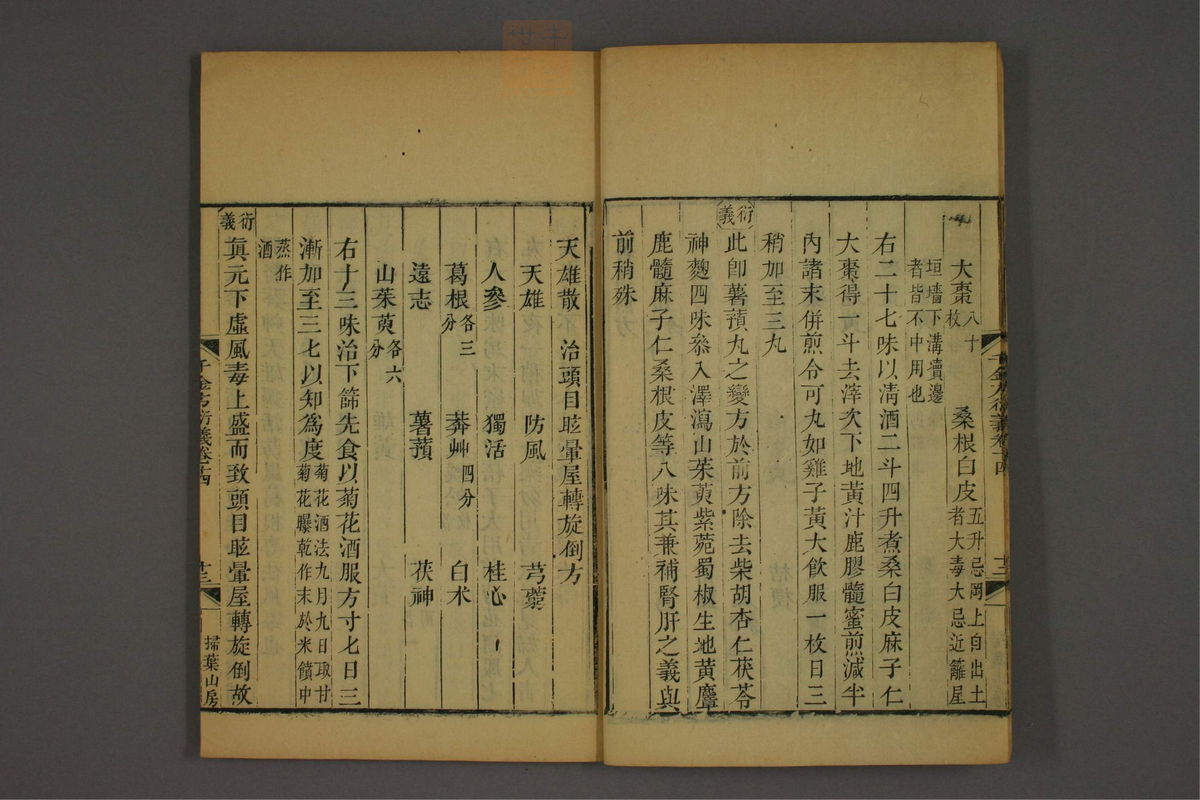 大棗八十枚　桑根白皮五升忌岡上自出土
者大毒大忌近籬屋
垣墻下溝瀆邊
者皆不中用也
右二十七味以淸酒二斗四升煮桑白皮麻子仁
大棗得一斗去滓次下地黃汁鹿膠髓蜜煎減半
內諸末併煎令可丸如雞子黃大飮服一枚日三
稍加至三丸
衍義
此卽薯蕷丸之變方於前方除去柴胡杏仁茯苓
神麴四味叅入澤瀉山茱萸紫菀蜀椒生地黃麞
鹿髓麻子仁桑根皮等八味其兼補腎肝之義與
前稍殊
天雄散　治頭目眩暈屋轉旋倒方
天雄　防風　芎藭
人參　獨活　桂心
葛根各三分　莽艸四分　白术
遠志　薯蕷　茯神
山茱萸各六分
右十三味治下篩先食以菊花酒服方寸匕日三
漸加至三匕以知爲度菊花酒法九月九日取甘
菊花曝乾作末於米饙中
蒸作
酒
衍義
眞元下虛風毒上盛而致頭目眩暈屋轉旋倒故
千金方衍義卷十四
十三
掃葉山房